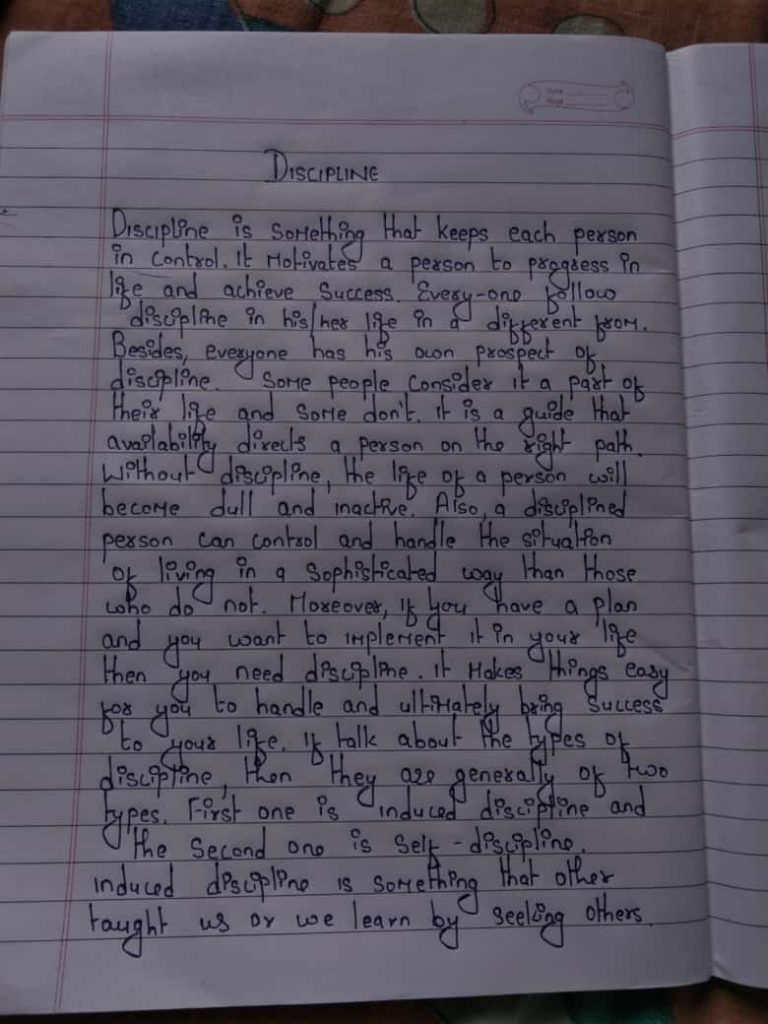 DISCIPLINE
Discipline is something that keeps each person
in control. It motivates a person to progress in
life and achieve success. Every-one follow
discipline in his/her life in a different from.
Besides, everyone has his own prospect of
discipline. Some people consider it a part of
their life and some don't. it is a guide that
availability directs a person on the right path.
Without discipline, the life of a person will
become dull and inactive. Also, a disciplined
person can control and handle the situation
of living in a sophisticated way than those
who do not. Moreover, if you have a plan
and you want to implement it in your life
then you need discipline. it makes things easy
for you to handle and ultimately bring success
to your life. If talk about the types of
discipline, then they are generally of two
types. First one is induced discipline and
the second one is self-discipline.
induced discipline is something that other
taught us or we learn by seeling others.